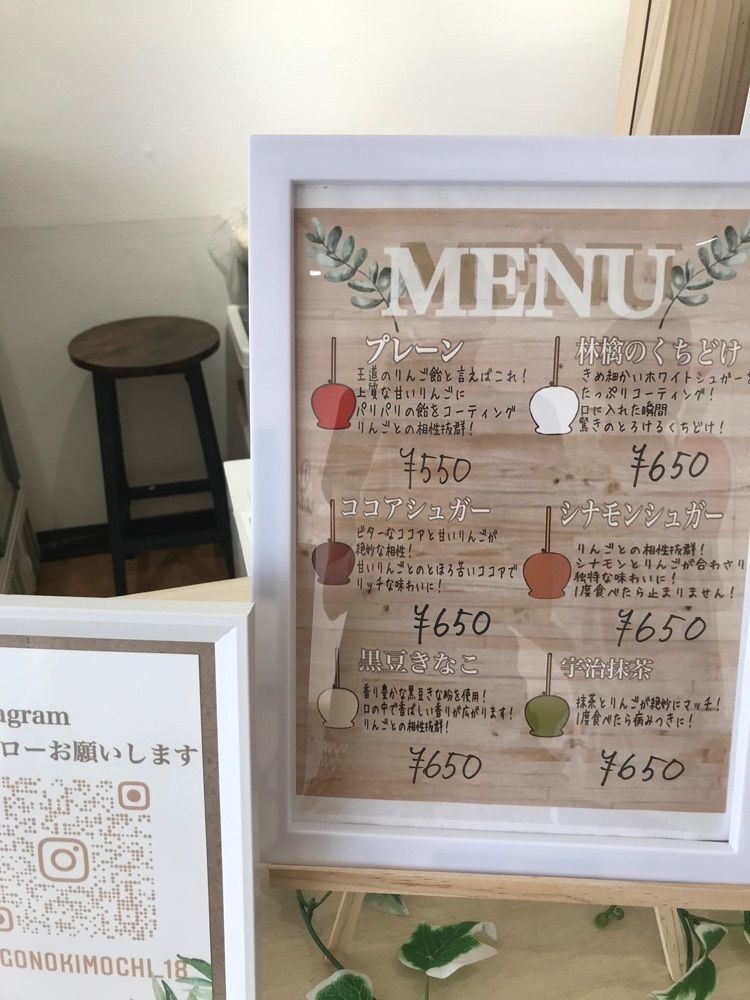 MENU
プレーン
王道のりんご飴と言えばこれ!
上質な甘いりんごに
パリパリの飴をコーティング
りんごとの相性抜群!
¥550
林檎のくちどけ
きめ細かいホワイトシュガーを
たっぷりコーティング!
口に入れた瞬間
驚きのとろけるくちどけ!
¥650
ココアシュガー
ビターなココアと甘いりんごが
絶妙な相性!
甘いりんごとのとほろ苦いココアで
リッチな味わいに!
¥650
シナモンシュガー
りんごとの相性抜群!
シナモンとりんごが合わさり
独特な味わいに!
1度食べたら止まりません!
¥650
黒豆きなこ
香り豊かな黒豆きな粉を使用!
口の中で香ばしい香りが広がります!
りんごとの相性抜群!
¥650
宇治抹茶
抹茶とりんごが絶妙にマッチ!
1度食べたら病みつきに!
¥650
agram
ローお願いします
GONOKIMOCHI_18